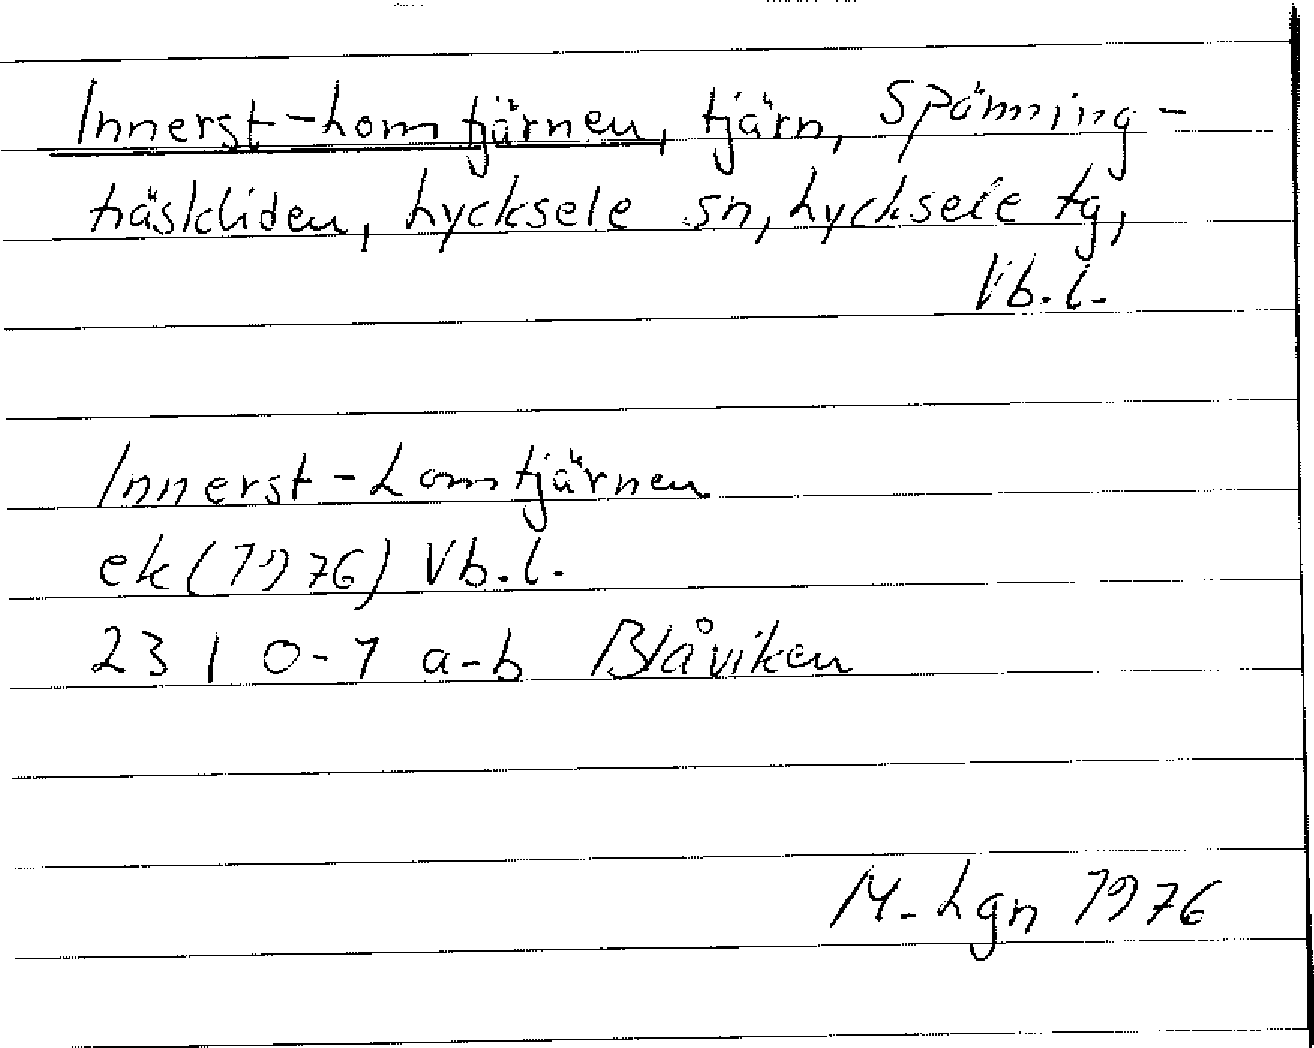 Innerst-Lomtjärnen, tjärn, Spänning-
träskliden, Lycksele sn, Lycksele tg,
Vb.l.
Innerst-Lomtjärnen
ek (1976) Vb.l.
23 I 0-1 a-b Blåviken
M-Lgn 1976